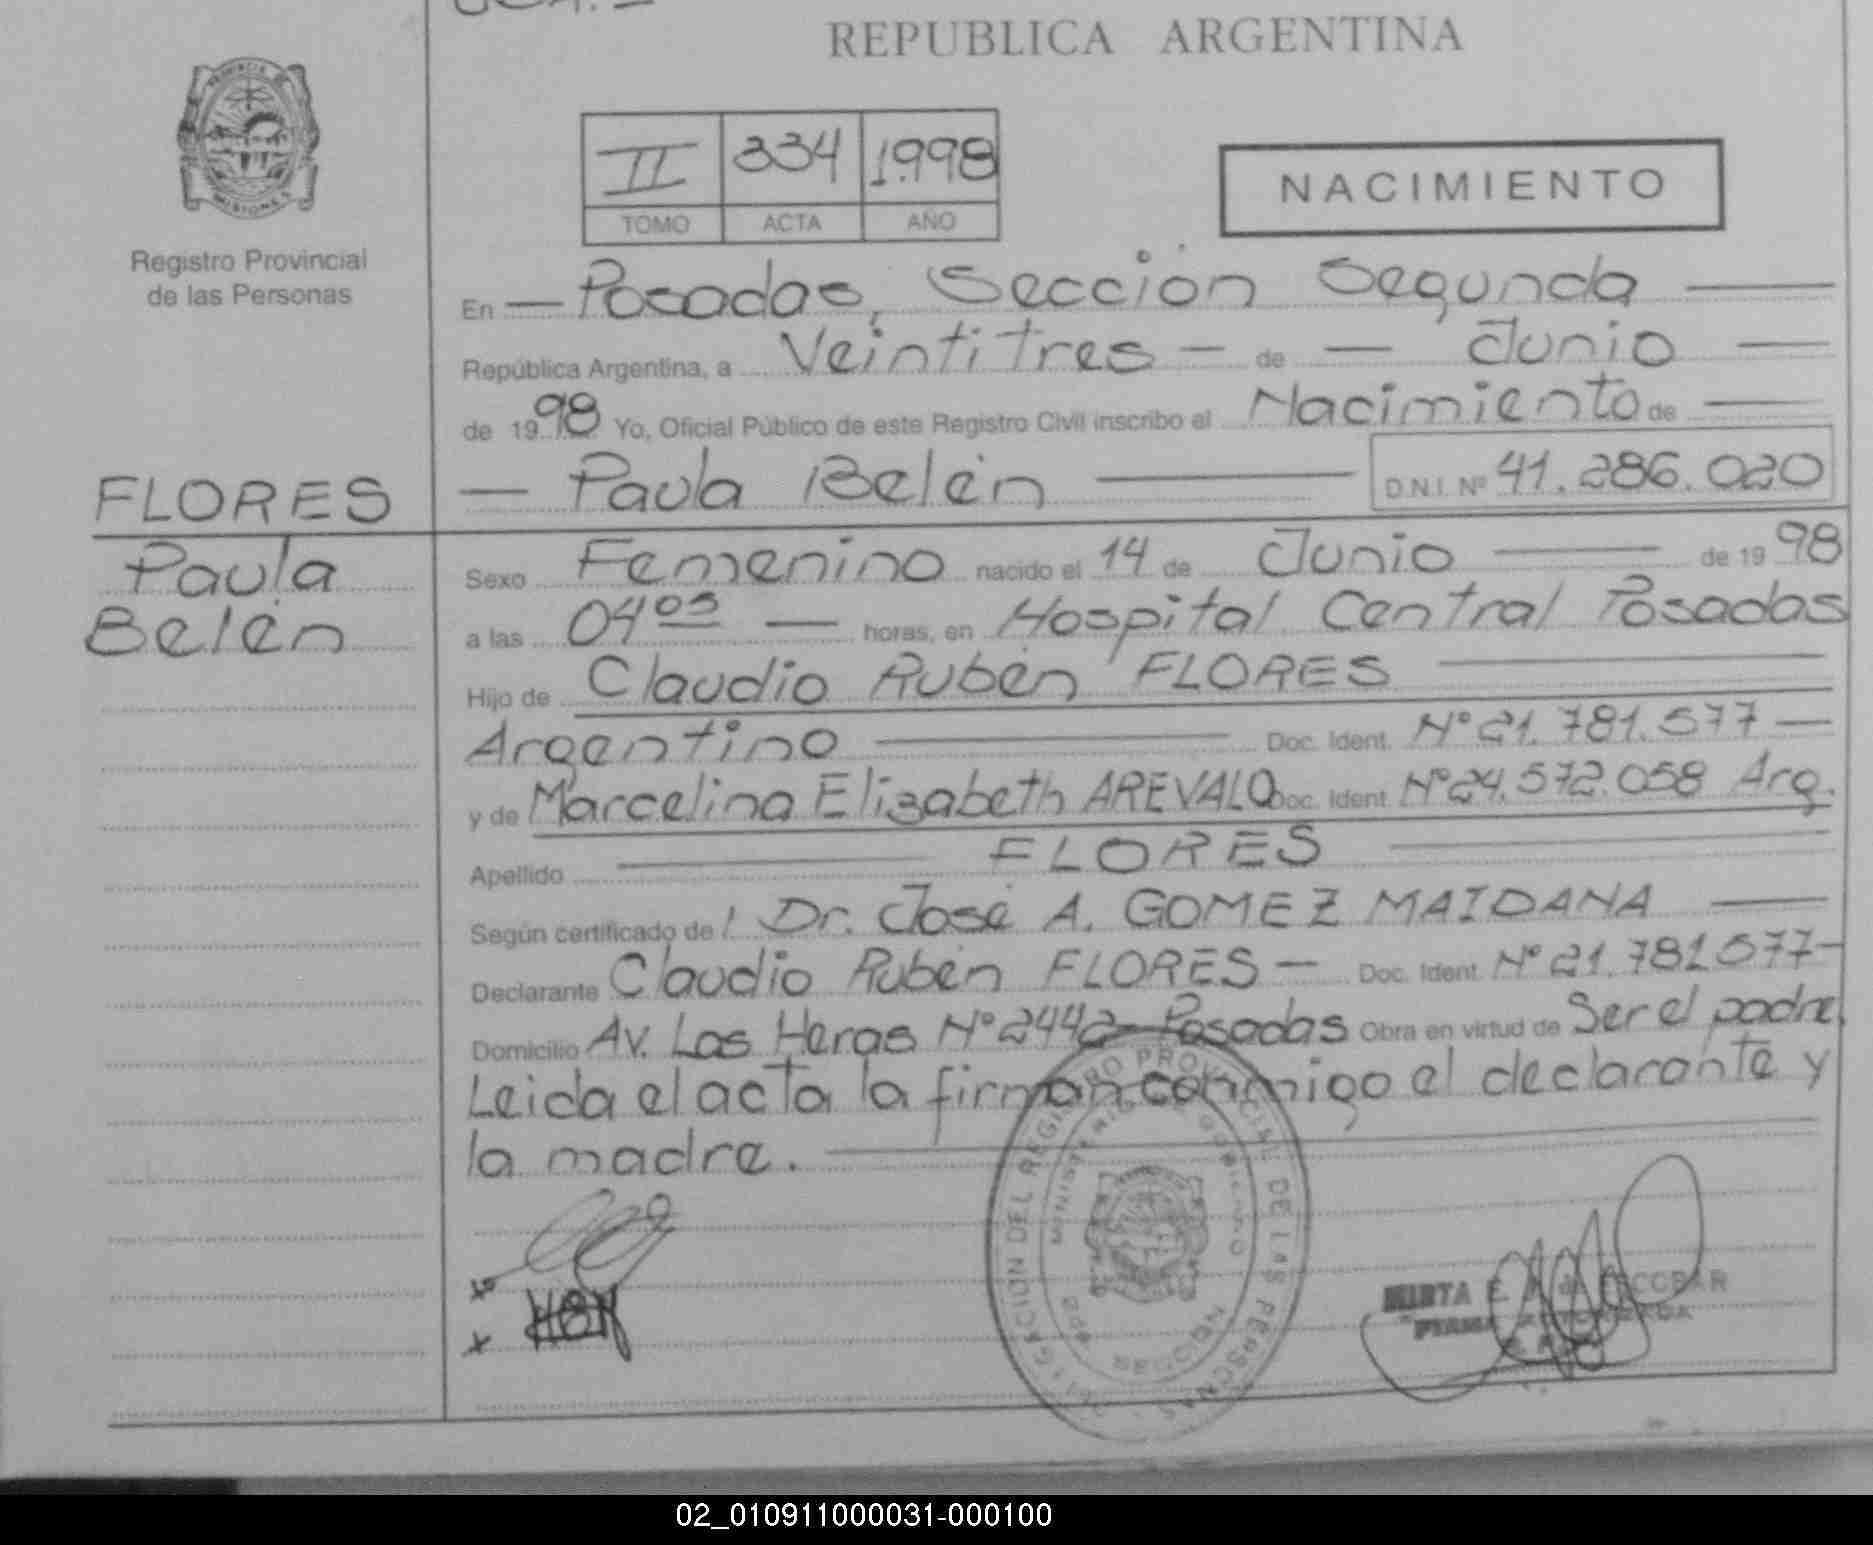 REPUBLICA ARGENTINA
PROVINCIA DE
MISIONES
Registro Provincial
de las Personas
II 334 1.998
TOMO ACTA AÑO
NACIMIENTO
En — Posadas, Sección Segunda —
República Argentina, a Veintitres — de — Junio —
de 1998 Yo, Oficial Público de este Registro Civil inscribo el Nacimiento de —
— Paula Belén — D.N.I. Nº 41.286.020
FLORES
Paula
Belén
Sexo Femenino nacido el 14 de Junio — de 1998
a las 04 05 — horas, en Hospital Central Posadas
Hijo de Claudio Rubén FLORES —
Argentino — Doc. Ident. Nº 21.781.577 —
y de Marcelina Elizabeth AREVALO Doc. Ident Nº 24.572.058 Arg.
Apellido — FLORES —
Según certificado de l Dr. José A. GOMEZ MAIDANA —
Declarante Claudio Rubén FLORES — Doc. Ident. Nº 21.781.577 —
Domicilio Av. Las Heras Nº 2442 - Posadas Obra en virtud de Ser el padre.
Leida el acta la firman conmigo el declarante y
la madre. —
DELEGACION DEL REGISTRO PROVINCIAL DE LAS PERSONAS
MINISTERIO DE GOBIERNO
MIRTA E. de ESCOBAR
FIRMA AUTORIZADA
02_010911000031-000100